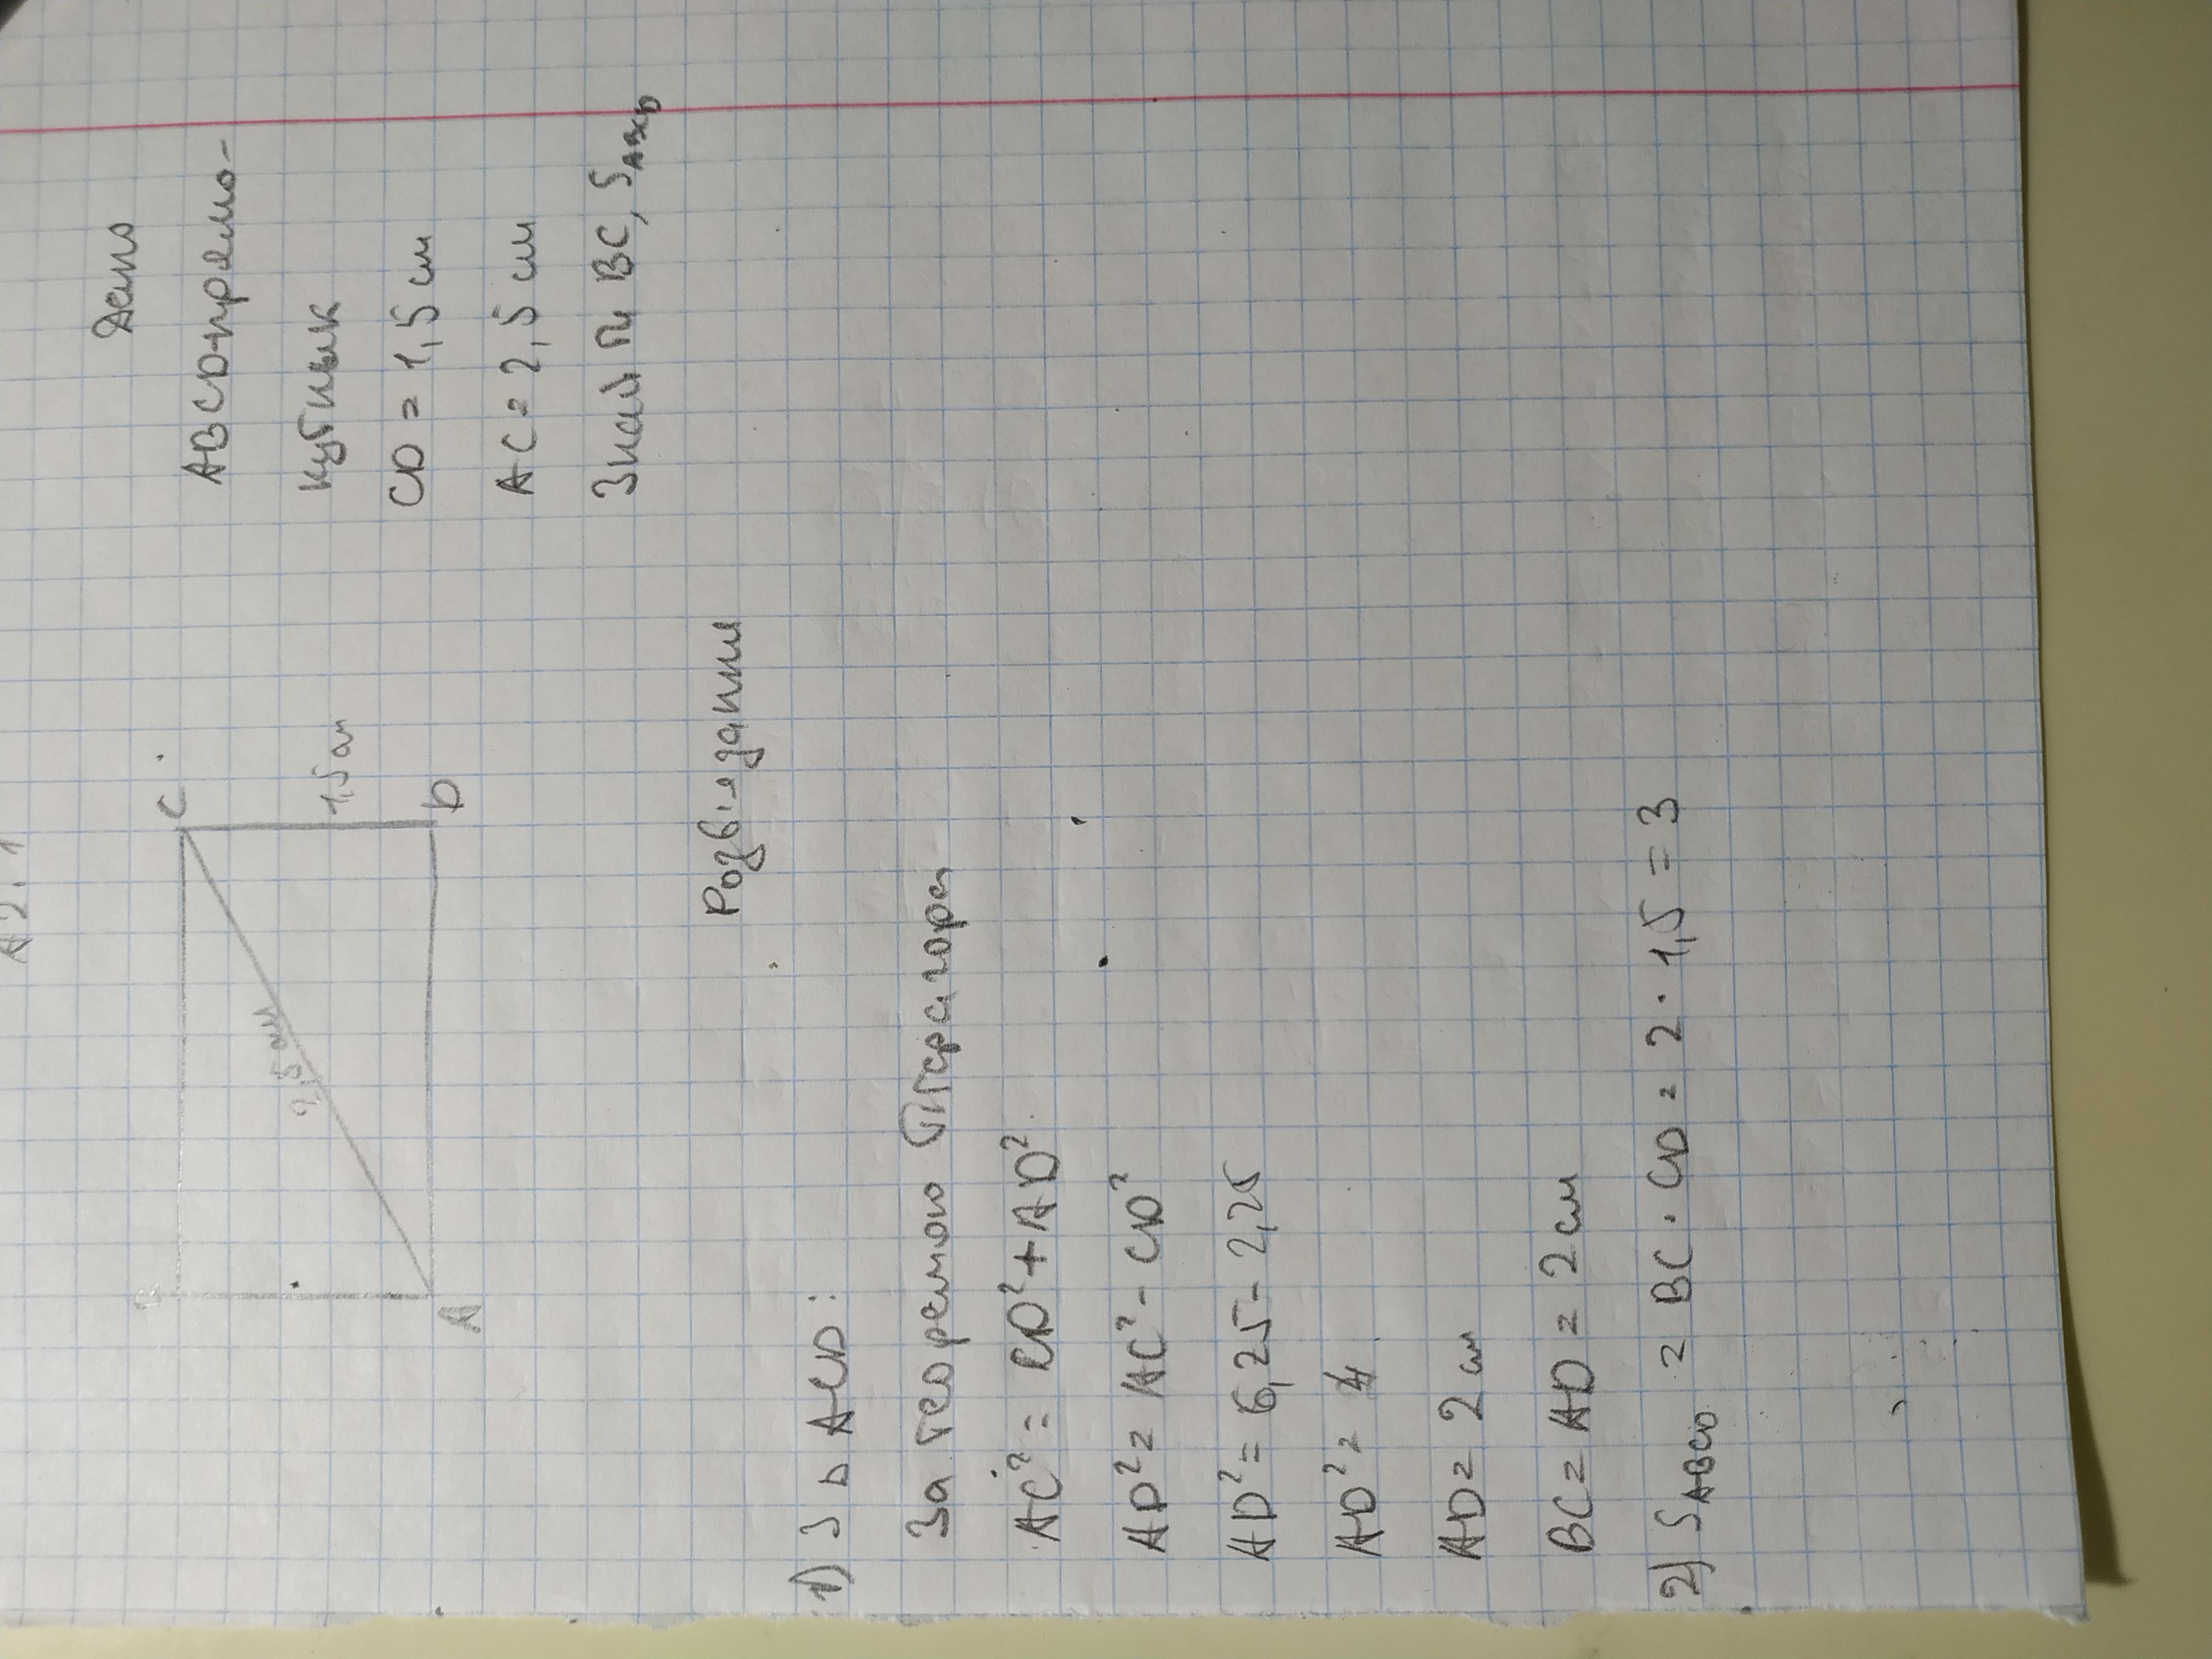 C
2,5 см
1,5 см
A
D
Дано
ABCD-прямо-
кутник
CD = 1,5 см
AC = 2,5 см
Знайти BC, SABCD
Розв'язання
1) З △ ACD:
За теоремою Піфагора
AC² = CD² + AD²
AD² = AC² - CD²
AD² = 6,25 - 2,25
AD² = 4
AD = 2 см
BC = AD = 2 см
2) SABCD = BC · CD = 2 · 1,5 = 3